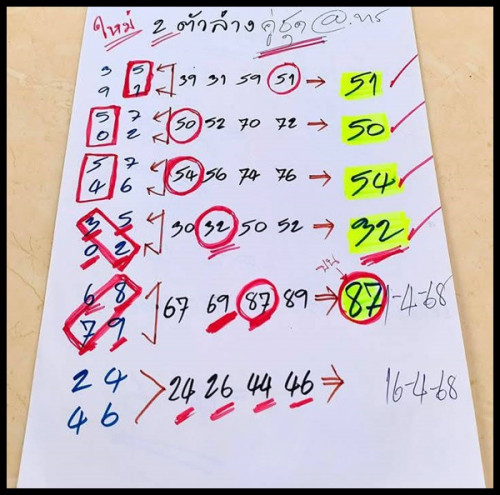 ใหม่ 2 ตัวล่าง คู่ชุด @.ทร
3 5
9 1 39 31 59 51 → 51
5 7
0 2 50 52 70 72 → 50
5 7
4 6 54 56 74 76 → 54
3 5
0 2 30 32 50 52 → 32
บน
6 8
7 9 67 69 87 89 ⇒ 87 1-4-68
2 4
4 6 24 26 44 46 ⇒ 16-4-68